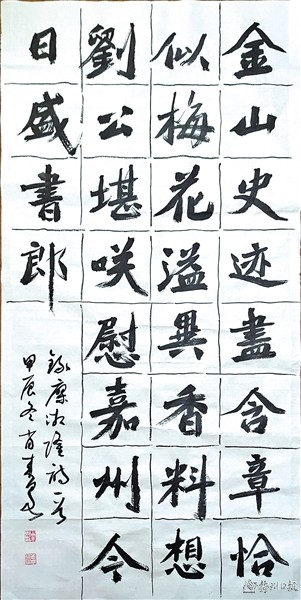 金山史迹盡含章恰
似梅花溢異香料想
劉公堪咲慰嘉州今
日盛書郎
錄廖湘隆詩一首
甲辰冬肖
梅州日报